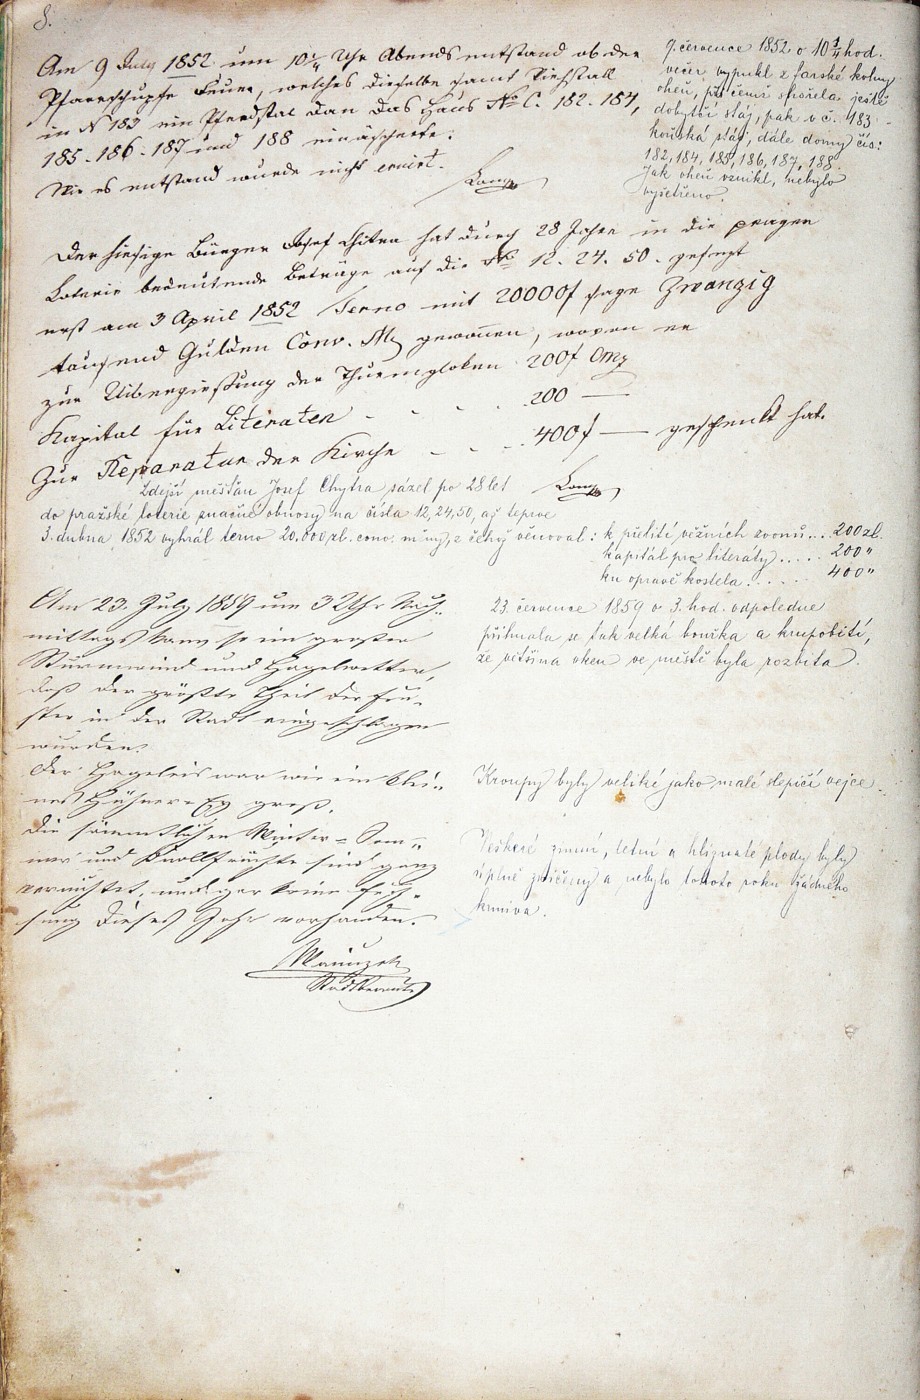 8.
Am 9 July 1852 um 10 1/4 Uhr Abends entstand ob der
Pfarrschupfe Feuer, welches dieselbe samt Viehstall
in N 183 ein Pferdstal dan das Haus No C. 182. 184,
185-186-187 und 188 einäscherte.
Wie es entstand wurde nicht eruirt.
9. července 1852 o 10 1/4 hod.
večer vypukl z farské kolny
oheň, při čemž shořela ještě
dobytčí stáj, pak v č. 183
koňská stáj, dále domy čís:
182, 184, 185, 186, 187, 188.
Jak oheň vznikl, nebylo
vyšetřeno.
Der hiesige Bürger Josef Chitra hat durch 28 Jahre in die prager
Loterie bedeutende Beträge auf die No 12. 24. 50. gesezt
erst am 3 April 1852 Terno mit 20000f sage Zwanzig
tausend Gulden Conv. Mz gewonnen, wovon er
zur Uibergießung der Thurmgloken 200f Cmz
Kapital für Literaten - - - - 200 —
Zur Reparatur der Kirche - - - 400f — geschenkt hat.
Zdejší měšťan Josef Chytra sázel po 28 let
do pražské loterie značné obnosy na čísla 12, 24, 50, až teprve
3. dubna 1852 vyhrál terno 20.000 zl. conv. měny, z čehož věnoval: k přelití věžních zvonů... 200 zl.
kapitál pro literáty..... 200 "
ku opravě kostela....... 400 "
Am 23. July 1859 um 3 Uhr Nach-
mittags kam so ein großer
Sturmwind und Hagelwetter,
daß der größte Theil der Fen-
ster in der Stadt eingeschlagen
wurden.
Der Hageleis war wie ein klei-
nes Hühner-Ey groß.
Die sämmtlichen Winter- Som-
mer und Knollfrüchte sind ganz
vernichtet, und gar keine
dieses Jahr vorhanden.
23. července 1859 o 3. hod. odpoledne
přihnala se tak velká bouřka a krupobití,
že většina oken ve městě byla rozbita.
Kroupy byly veliké jako malé slepičí vejce.
Veškeré zimní, letní a hlíznaté plody byly
úplně zničeny a nebylo tohoto roku žádného
krmiva.